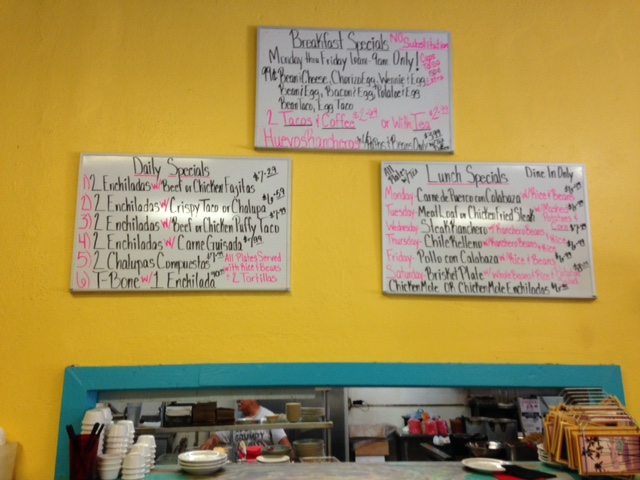 Breakfast Specials NO Substitution
Monday thru Friday 10am-9am Only!
99¢ Bean & Cheese, Chorizo & Egg, Wennie & Egg
Bean & Egg, Bacon & Egg, Potatoe & Egg
Bean Taco, Egg Taco
2 Tacos & Coffee or With Tea
Huevos Rancheros
Daily Specials
1) 2 Enchiladas w/ Beef or Chicken Fajitas
2) 2 Enchiladas w/ Crispy Taco or Chalupa
3) 2 Enchiladas w/ Beef or Chicken Puffy Taco
4) 2 Enchiladas w/ Carne Guisada
5) 2 Chalupas Compuestas
6) T-Bone w/ 1 Enchilada
All Plates Served
with Rice & Beans
& 2 Tortillas
All Plates
Lunch Specials Dine In Only
Monday- Carne de Puerco con Calabaza w/ Rice & Beans
Tuesday- Meat Loaf or Chicken Fried Steak w/ Mashed Potatoes &
Wednesday Steak Ranchero w/ Ranchero Beans & Rice
Thursday- Chile Relleno w/ Ranchero Beans & Rice
Friday- Pollo con Calabaza w/ Rice & Beans
Saturday- Brisket Plate w/ Whole Beans & Rice
Chicken Mole OR Chicken Mole Enchiladas